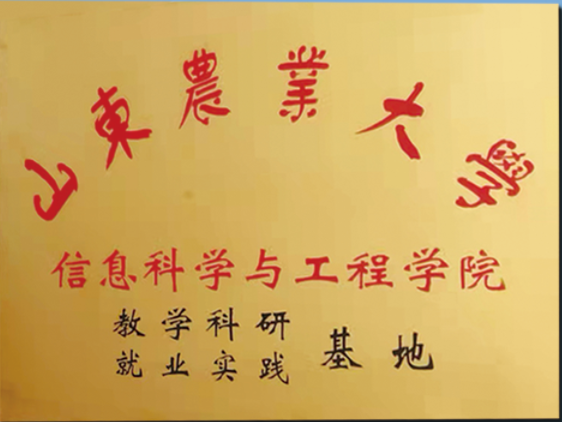 山東農業大學
信息科学与工程学院
教学科研
就业实践 基地